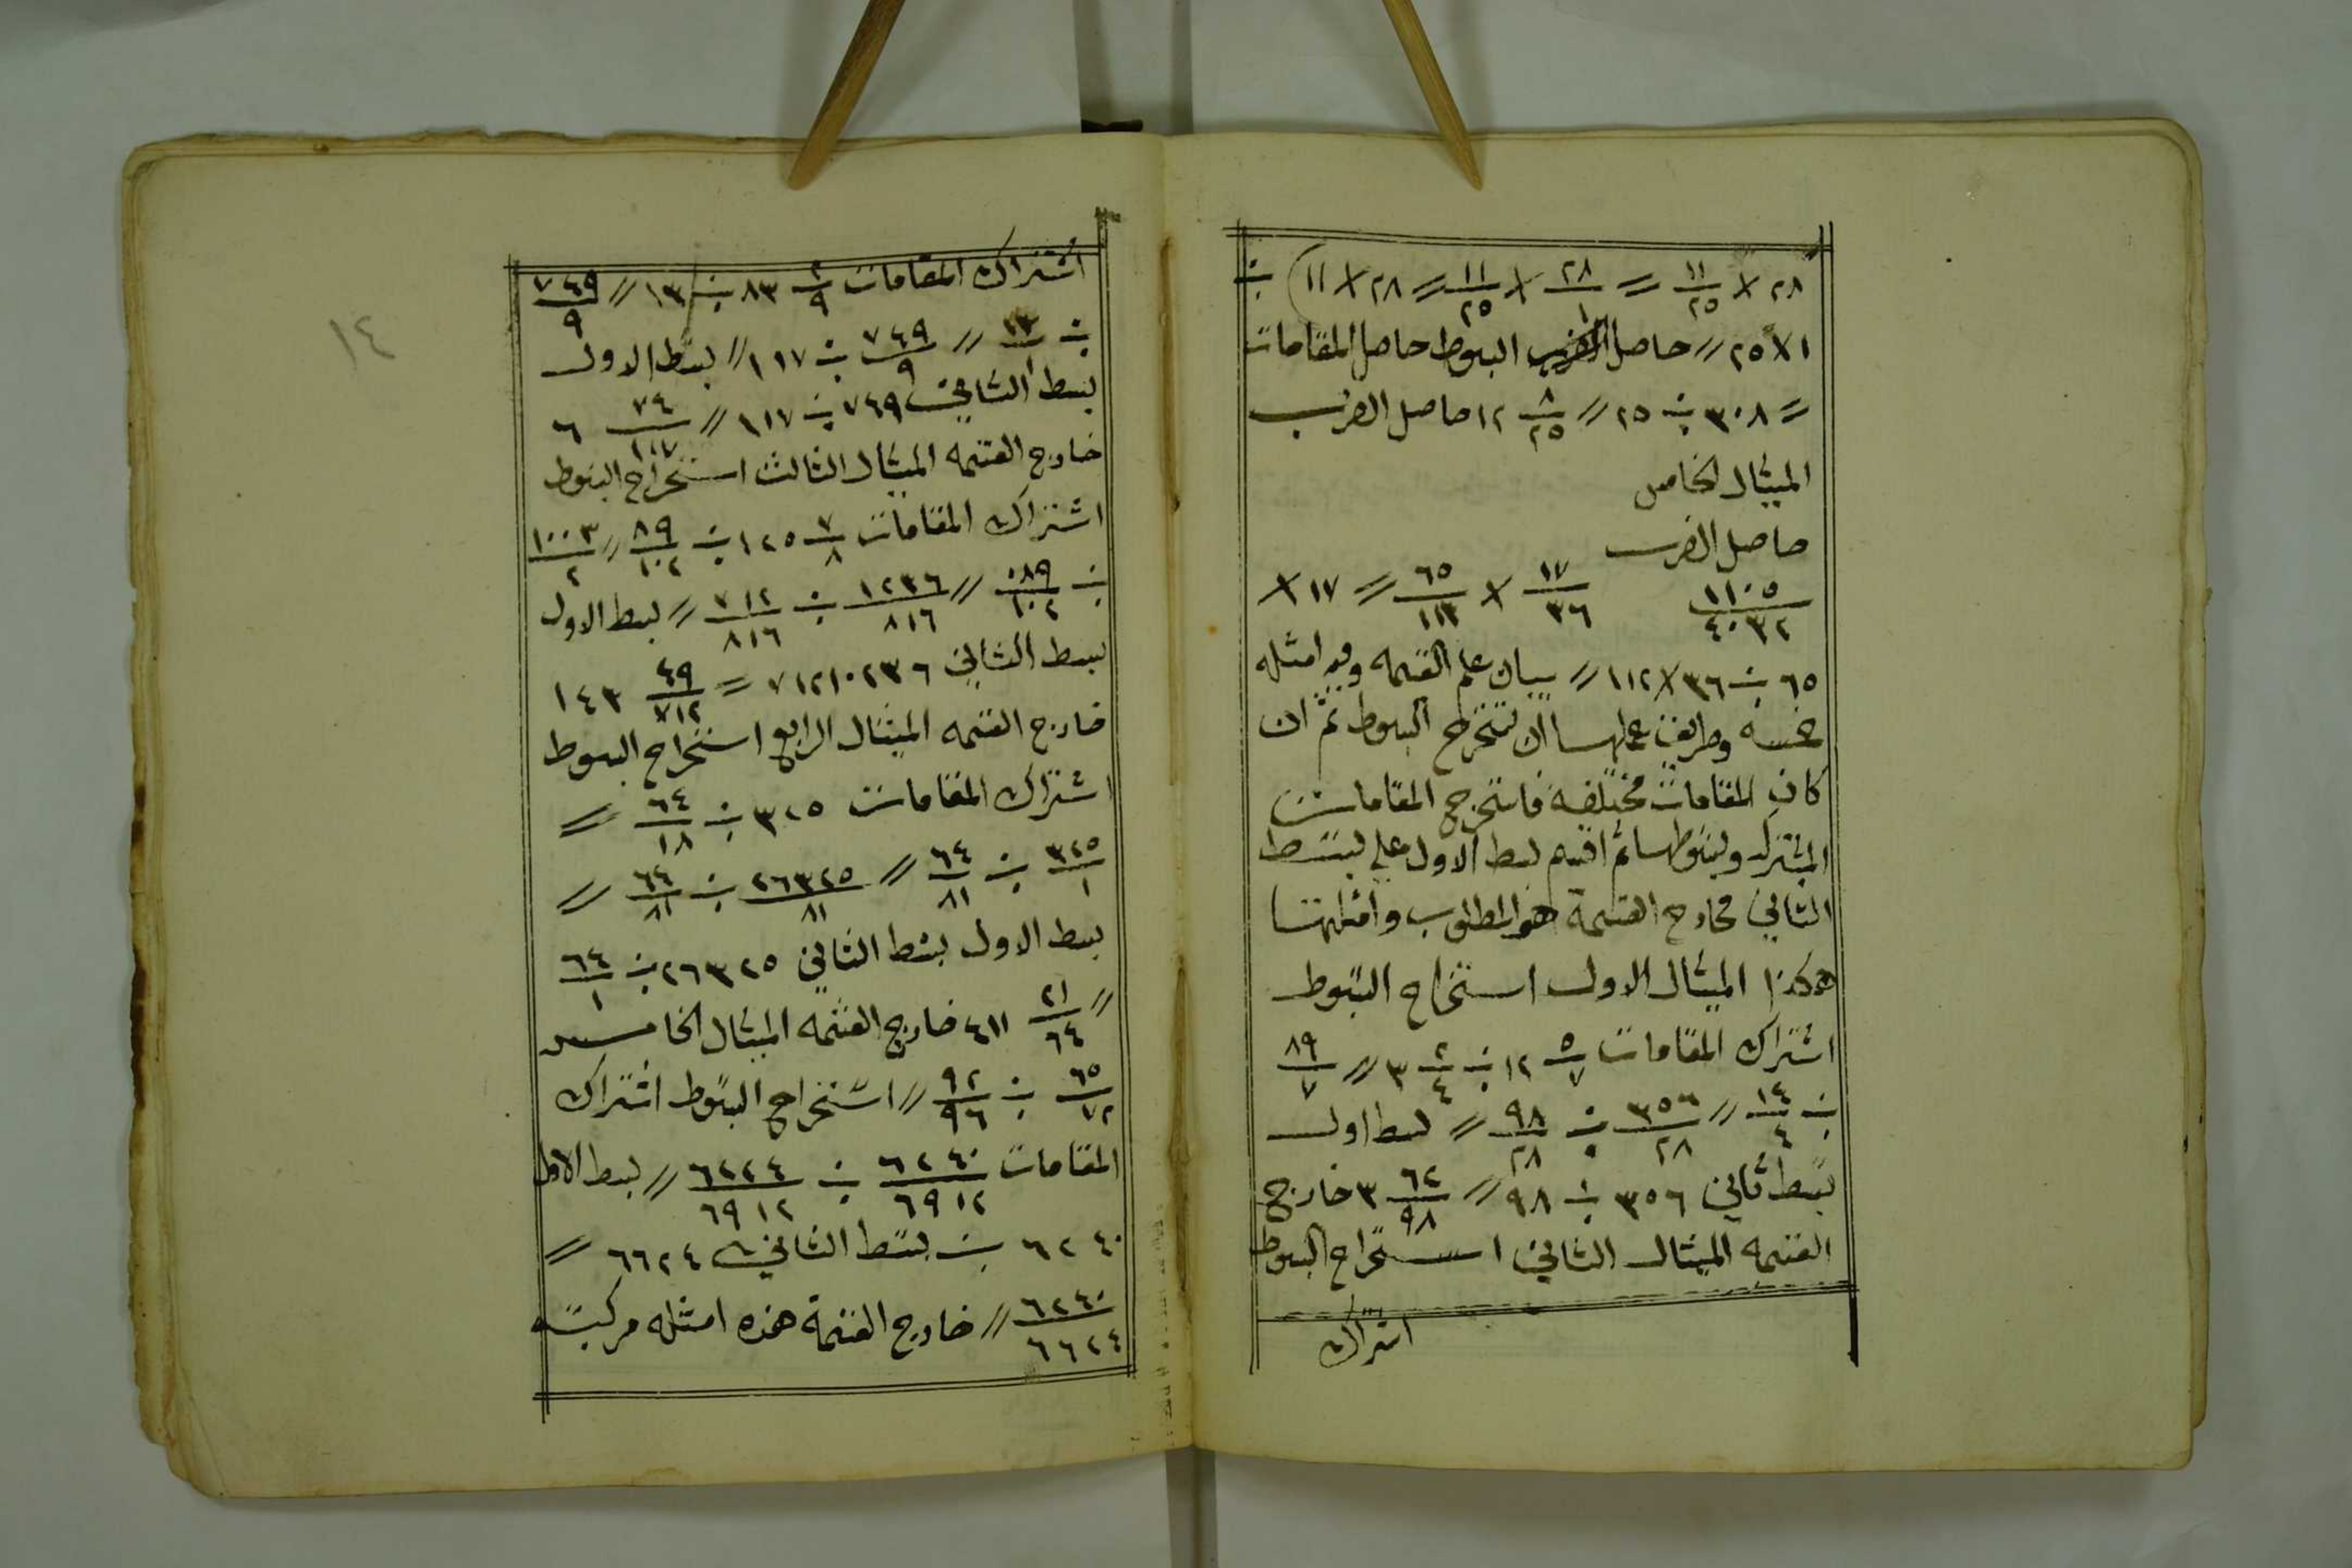 ٢٨ × ١١/٢٥ = ٢٨/١ × ١١/٢٥ = ٢٨ × ١١) ÷
١ × ٢٥ = حاصل البسوط حاصل المقامات
= ٣٠٨ ÷ ٢٥ = ٨/٢٥ ١٢ حاصل الضرب
الميثال الخامس
حاصل الضرب
١١٠٥/٤٠٣٢ ١٧/٣٦ × ٦٥/١١٢ = ١٧ ×
٦٥ ÷ ٣٦ × ١١٢ = بيان علم القسمه وفيه امثله
خمسه وطريقت عملها ان تستخرج البسوط ثم ان
كانت المقامات مختلفه فاستخرج المقامات
المشترك وبسوطها ثم اقسم بسط الاول علي بسط
الثاني فخارج القسمة هو المطلوب وامثلهتا
هكذا الميثال الاول استخراج البسوط
اشتراك المقامات ٥/٧ ١٢ ÷ ٢/٤ ٣ = ٨٩/٧
÷ ١٤/٤ = ٣٥٦/٢٨ ÷ ٩٨/٢٨ = بسط اول
بسط ثاني ٣٥٦ ÷ ٩٨ = ٦٢/٩٨ ٣ خارج
القسمه الميثال الثاني استخراج البسوط
اشتراك
١٤
اشتراك المقامات ٢/٩ ٨٣ ÷ ١٣ = ٧٤٩/٩
÷ ١٣/١ = ٧٤٩/٩ ÷ ١١٧ = بسط الاول
بسط الثاني ٧٤٩ ÷ ١١٧ = ٧٤/١١٧ ٦
خارج القسمه الميثال الثالث استخراج البسوط
اشتراك المقامات ٧/٨ ١٢٥ ÷ ٨٩/١٠٢ = ١٠٠٣/٢
÷ ٨٩/١٠٢ = ١٠٢٣٦/٨١٦ ÷ ٧١٢/٨١٦ = بسط الاول
بسط الثاني ٧١٢١٠٢٣٦ = ٤٩/٧١٢ ١٤٣
خارج القسمه الميثال الرابع استخراج البسوط
اشتراك المقامات ٣٢٥ ÷ ٦٤/١٨ =
٣٢٥/١ ÷ ٦٤/٨١ = ٢٦٣٢٥/٨١ ÷ ٦٤/٨١ =
بسط الاول بسط الثاني ٢٦٣٢٥ ÷ ٦٤/١
= ٢١/٦٤ ٤١١ خارج القسمه الميثال الخامس
٦٥/٧٢ ÷ ٩٢/٩٦ = استخراج البسوط اشتراك
المقامات ٦٢٤٠/٦٩١٢ ÷ ٦٢٢٤/٦٩١٢ = بسط الاول
٦٢٤٠ ÷ بسط الثاني ٦٦٢٤ =
٦٢٤٠/٦٦٢٤ = خارج القسمة هذه امثله مركبه